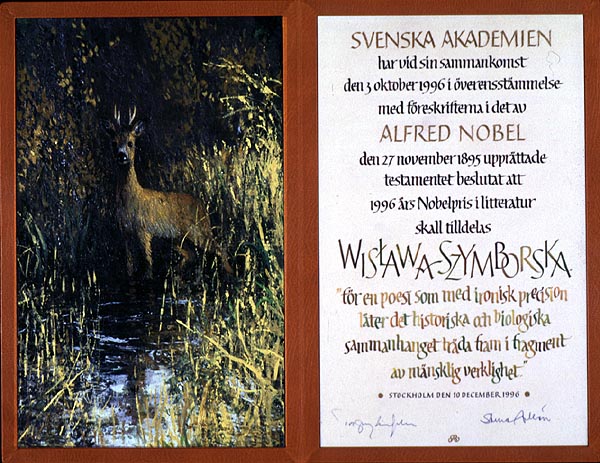 SVENSKA AKADEMIEN
har vid sin sammankomst
den 3 oktober 1996 i överensstämmelse
med föreskrifterna i det av
ALFRED NOBEL
den 27 november 1895 upprättade
testamentet beslutat att
1996 års Nobelpris i litteratur
skall tilldelas
WISŁAWA SZYMBORSKA
"för en poesi som med ironisk precision
låter det historiska och biologiska
sammanhanget träda fram i fragment
av mänsklig verklighet."
• STOCKHOLM DEN 10 DECEMBER 1996 •